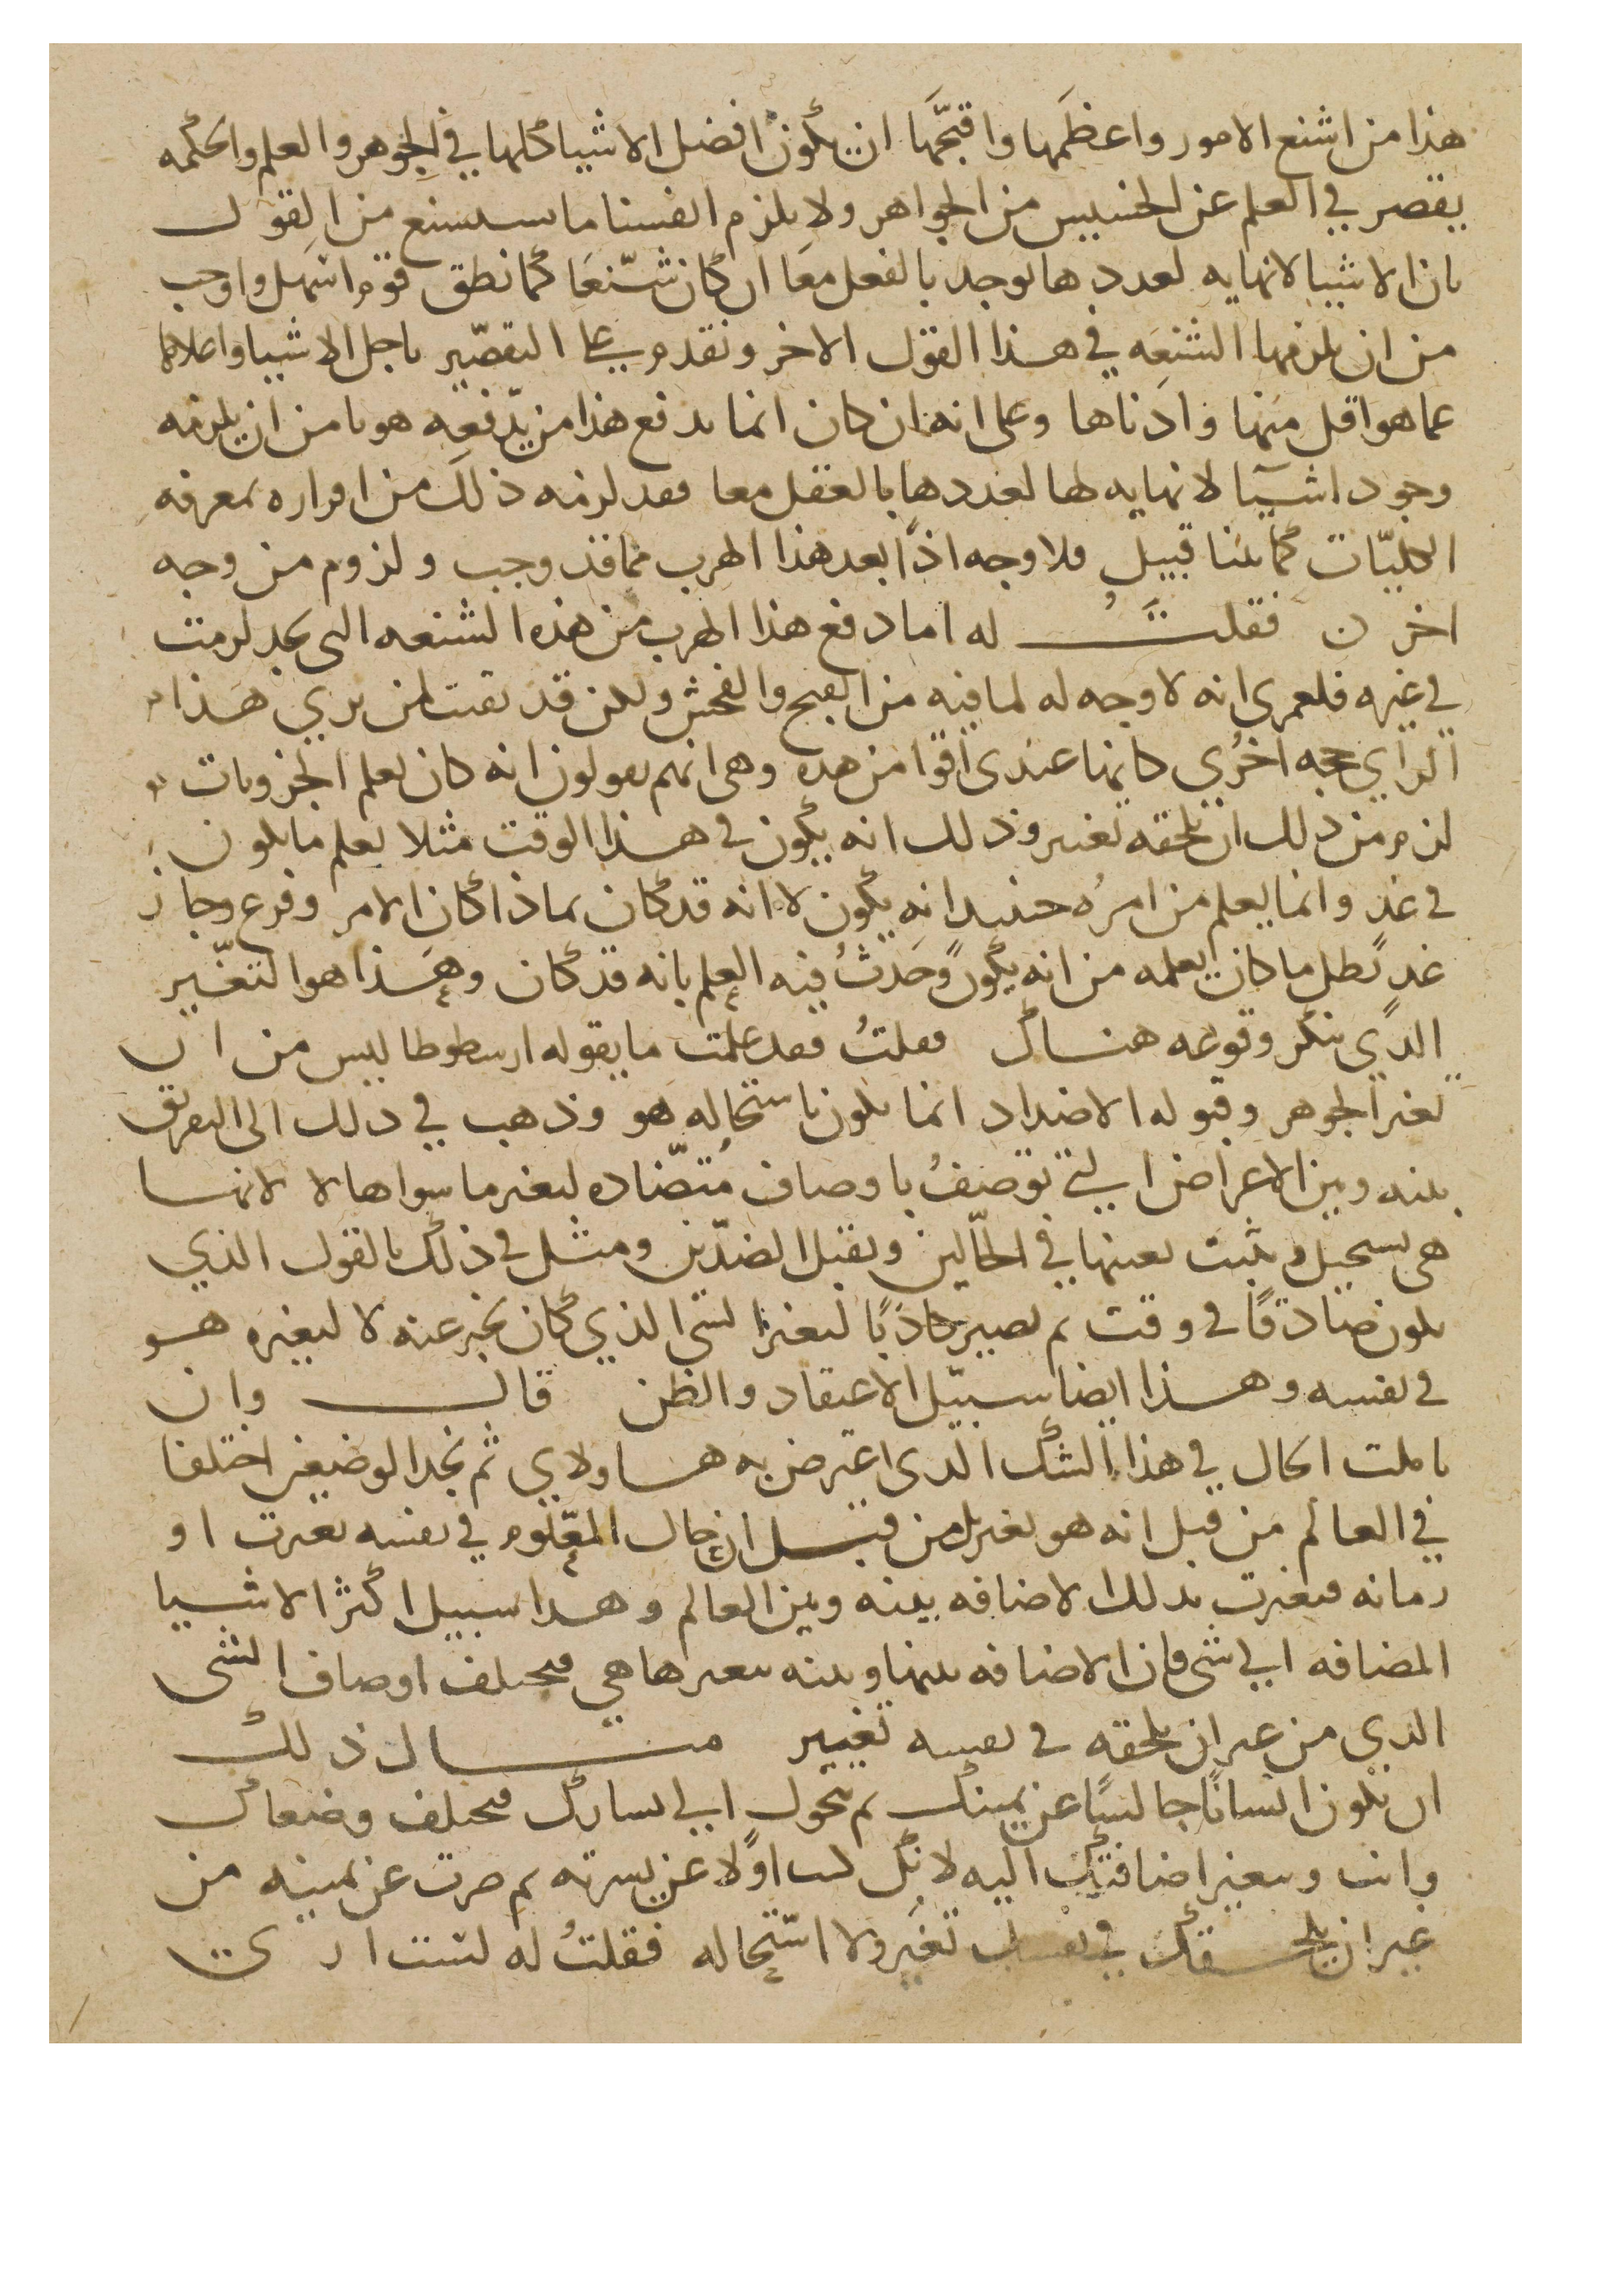 هذا من اشنع الامور واعظمها واقبحها ان يكون افضل الاشيا كلها في الجوهر والعلم والحكمه
يقصر في العلم عن الخسيس من الجواهر ولا يلزم انفسنا ما سيسنع من القول
بان الاشيا لانهايه لعددها يوجد بالفعل معا ان كان شنعا كما نطق قوم اسهل واوجب
من ان يلزمها الشنعه في هذا القول الاخر ونقدم على التقصير باجل الاشيا واعلاها
عما هو اقل منها وادناها وعلى انه ان كان انما يدفع هذا من يدفعه هربا من ان يلزمه
وجود اشيا لا نهايه لها لعددها بالعقل معا فقد لزمه ذلك من اقراره بمعرفه
الكليات كما بينا قبيل فلا وجه اذا بعد هذا الهرب مما قد وجب ولزوم من وجه
اخر ن فقلت له اما دفع هذا الهرب من هذه الشنعه التى لزمت
في غيره فلعمرى انه لا وجه له لما فيه من القبح والفحش ولكن قد بقيت لمن يري هذا
الراي حجه اخرى كانها عندى اقوا من هذه وهى انهم يقولون انه كان يعلم الجزويات
لزم من ذلك ان يلحقه تغيير وذلك انه يكون في هذا الوقت مثلا يعلم ما يكون
في غد وانما يعلم من امره حينيد انه يكون لا انه قد كان بماذا كان الامر وفرع وجاز
غد بطل ما كان يعلمه من انه يكون وحدث فيه العلم بانه قد كان وهذا هو التغيير
الذي ينكر وقوعه هناك فقلت فقد علمت ما يقوله ارسطوطاليس من ان
تغير الجوهر وقبوله الاضداد انما يكون باستحاله هو وذهب في ذلك الى التفريق
بينه وبين الاعراض التي توصف باوصاف متضاده لتغير ما سواها لا لانها
هى تستحيل وتثبت بعينها في الحالين وتقبل الضدين ومثل في ذلك بالقول الذي
يكون صادقا في وقت ثم يصير كاذبا لتغير الشى الذي كان يخبر عنه لا لتغيره هو
في نفسه وهذا ايضا سبيل الاعتقاد والظن قال وان
تاملت الحال في هذا الشك الدى اعترض به هاولاي ثم تجد الوضيعين اختلفا
في العالم من قبل انه هو تغير بل من قبل ان حال المعلوم في نفسه تغيرت او
زمانه فتغيرت بذلك الاضافه بينه وبين العالم وهذا سبيل اكثر الاشيا
المضافه الى شى فان الاضافه بينها وبينه بتغيرها هي فتختلف اوصاف الشى
الذي من غير ان يلحقه في نفسه تغيير مثال ذلك
ان يكون انسانا جالسا عن يمينك ثم يتحول الي يسارك فتختلف وضعاك
وانت وتتغير اضافتك اليه لانك كنت اولا عن يسرته ثم صرت عن يمينه من
غير ان يلحقك في نفسك تغير ولا استحاله فقلت له لست ارى